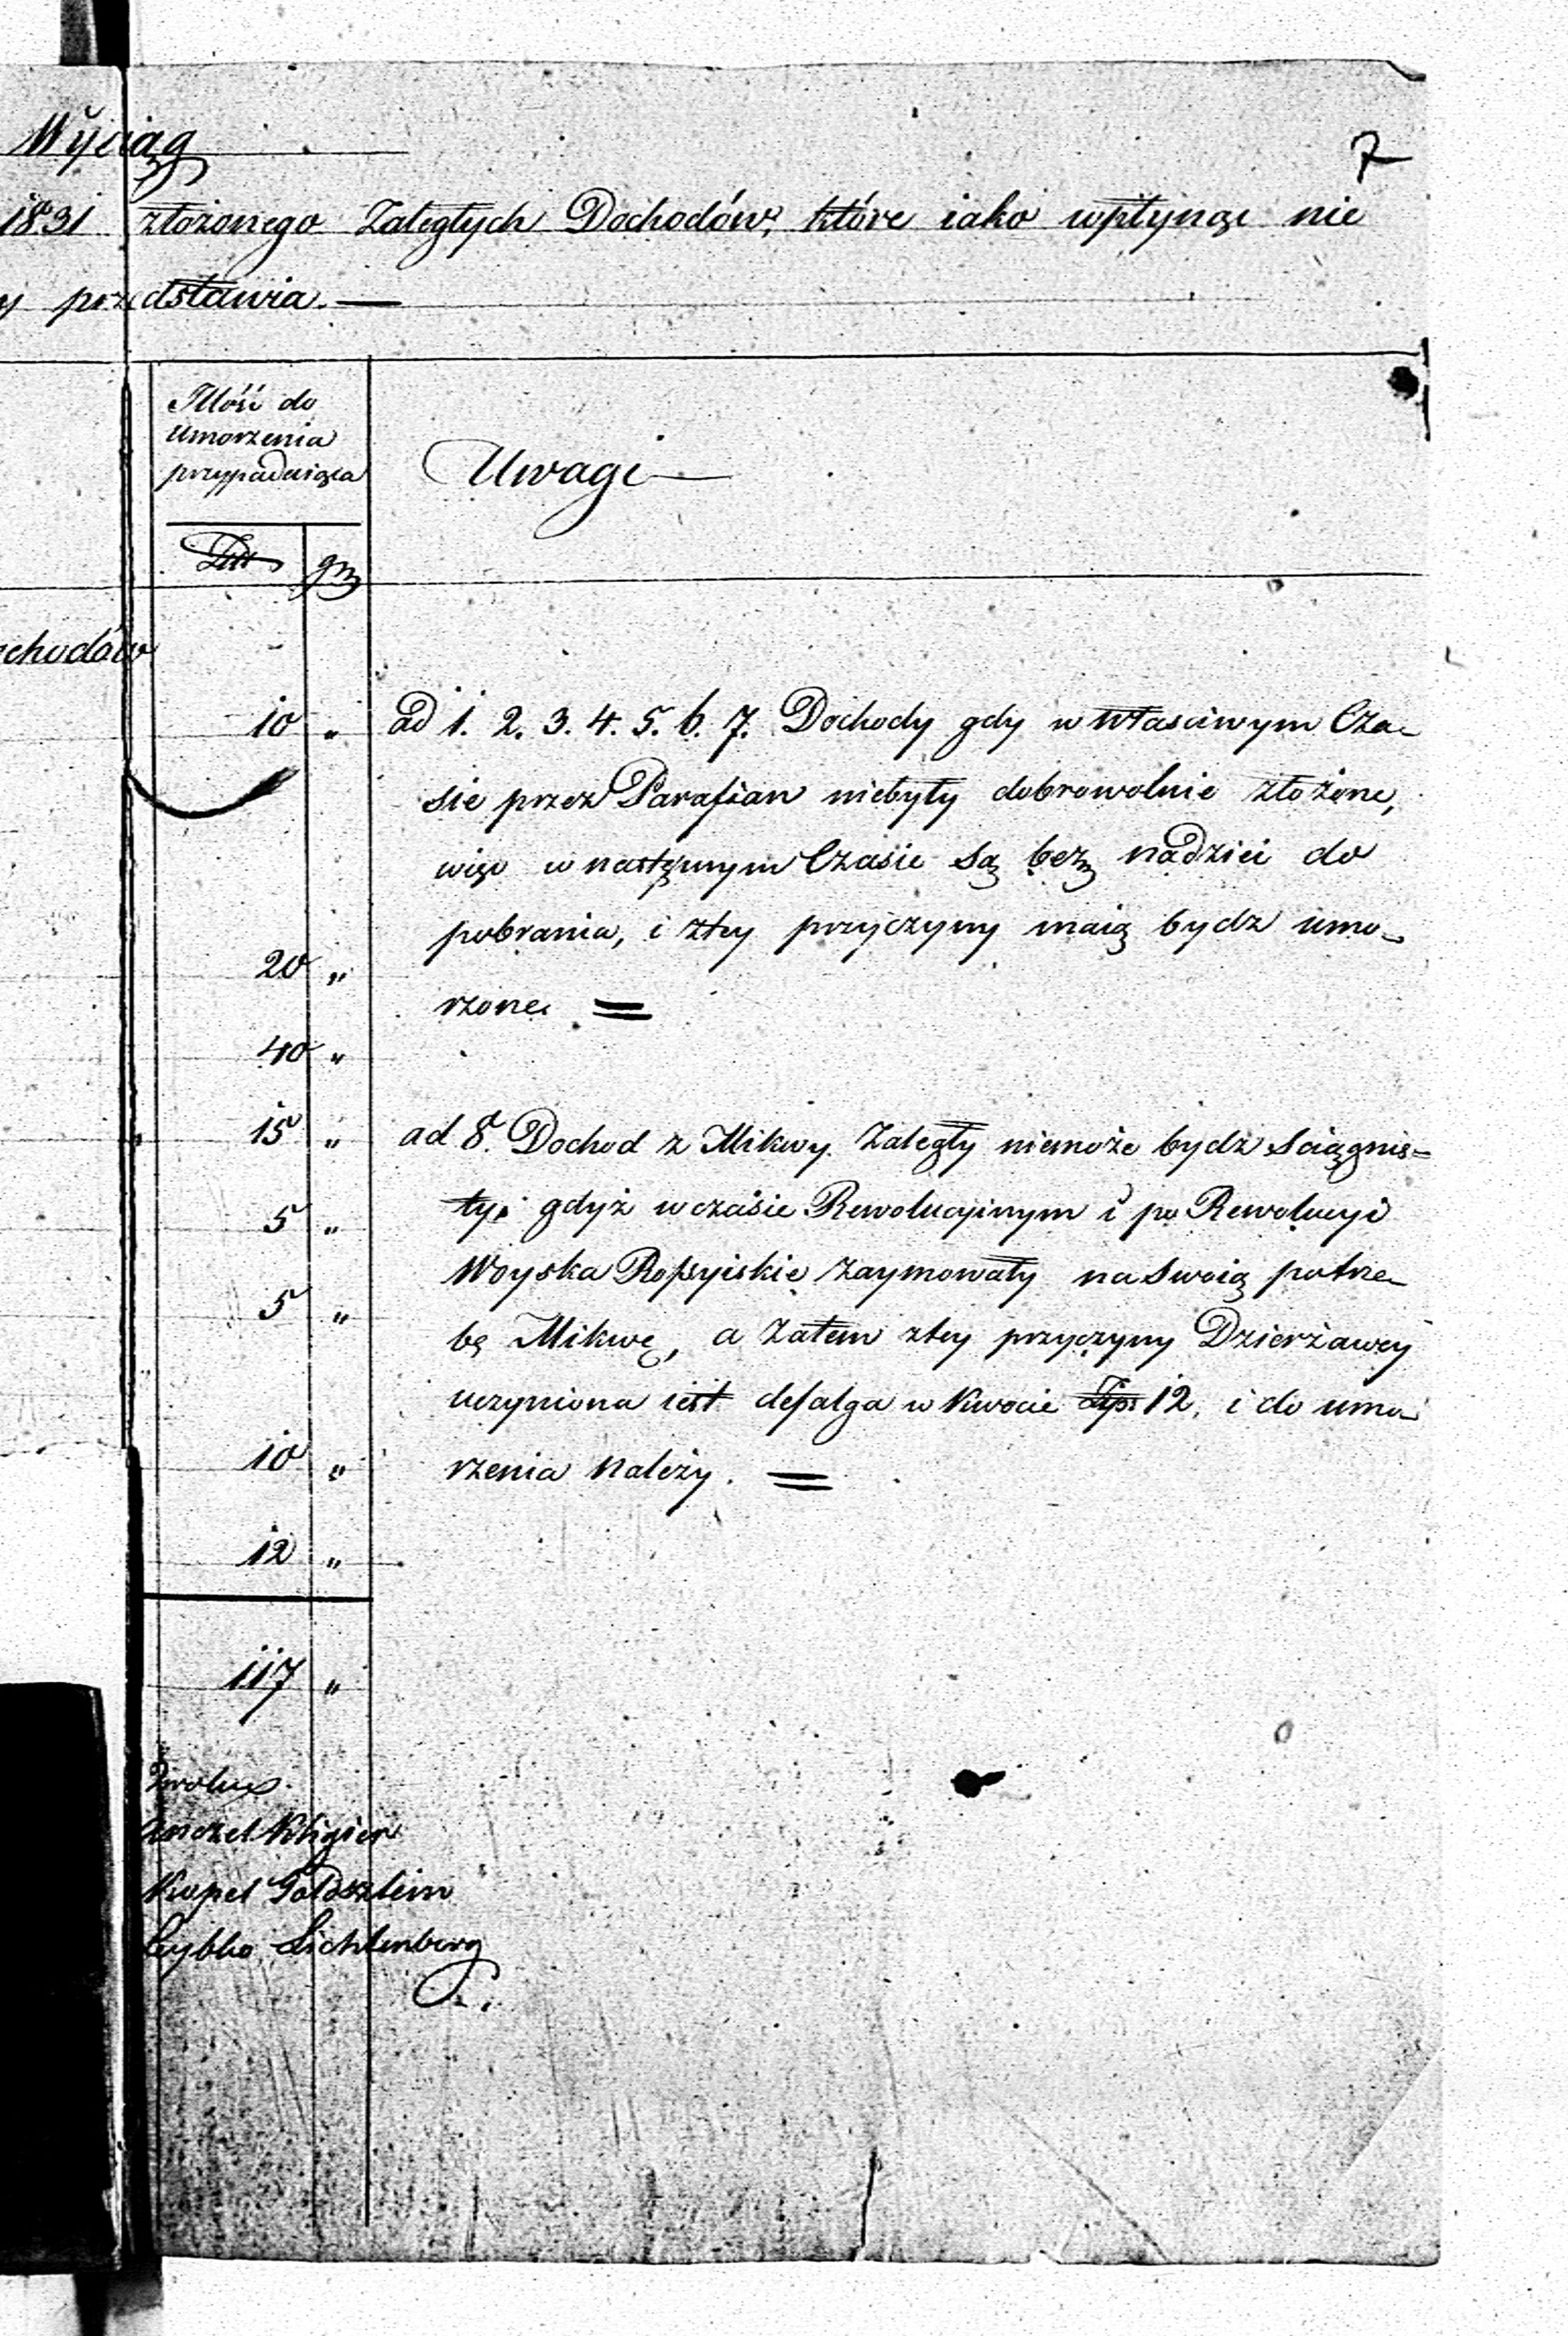 Wyciąg
7
1831 złożonego Zaległych Dochodów, które iako wpłynąc nie
przedstawia. —
Ilość do
Umorzenia
przypadaiąca
Uwagi —
Złł gr
chodów
10 "
ad 1. 2. 3. 4. 5. 6. 7. Dochody gdy w własciwym Cza-
sie przez Parafian niebyły dobrowolnie złożone,
więc w następnym Czasie są bez nadziei do
pobrania, i ztey przyczyny maią bydz umo-
20 "
rzone. =
40 "
15 "
ad 8. Dochod z Mikwy Zaległy niemoże bydz sciągnię=
5 "
ty, gdyż w czasie Rewolucyinym i po Rewolucyi
Woyska Rossyiskie zaymowały na swoią potrze-
5 "
bę Mikwę, a Zatem ztey przyczyny Dzierżawcy
uczyniona iest defalga w Kwocie Złp: 12, i do umo-
10 "
rzenia należy. =
12 "
117 "
Anczel Kligier
Kopel Goldsztein
Leybko Lichtenberg